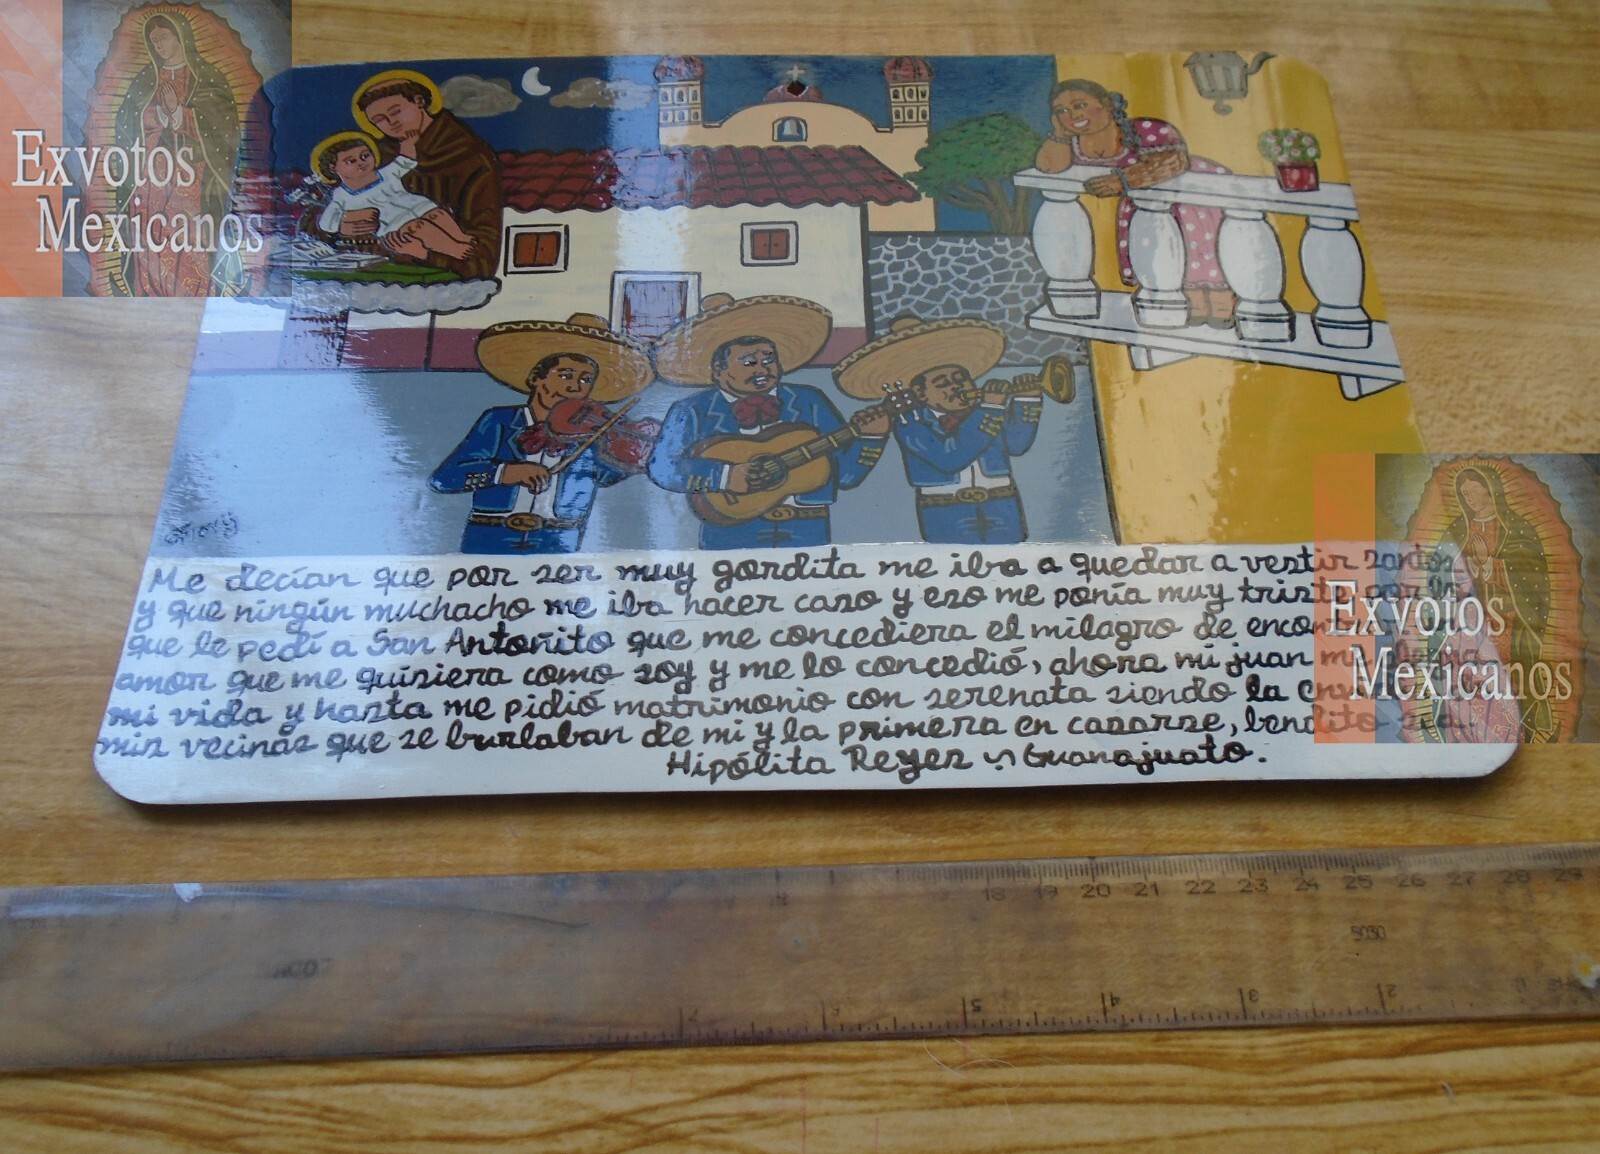 Exvotos
Mexicanos
Me decían que por ser muy gordita me iba a quedar a vestir santos
y que ningún muchacho me iba hacer caso y eso me ponía muy triste por lo
que le pedí a San Antoñito que me concediera el milagro de
amor que me quisiera como soy y me lo concedió, ahora mi juan
mi vida y hasta me pidió matrimonio con serenata siendo la
mis vecinas que se burlaban de mi y la primera en casarse, bendito sea.
Hipólita Reyes Guanajuato.
Exvotos
Mexicanos
18 19 20 21 22 23 24 25 26 27 28 29
5030
7 6 5 4 3 2